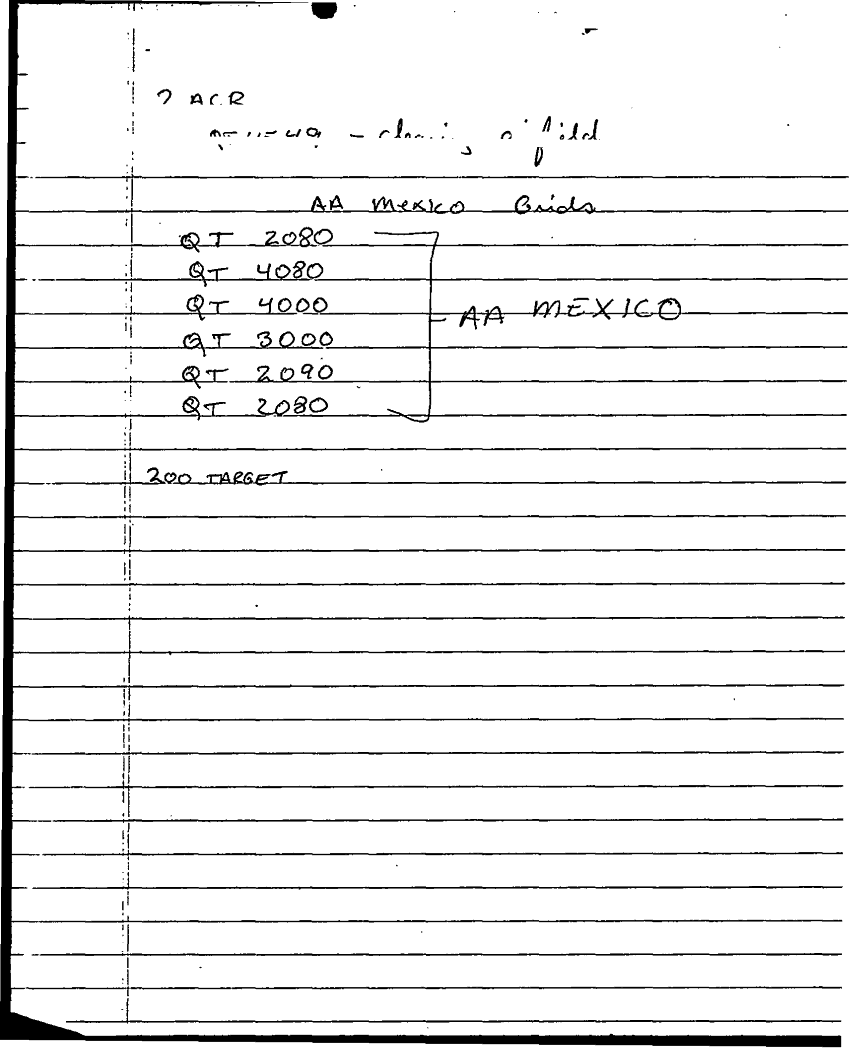 2 ACR
– clearing
AA Mexico Grids
QT 2080
QT 4080
QT 4000
AA MEXICO
QT 3000
QT 2090
QT 2080
200 TARGET